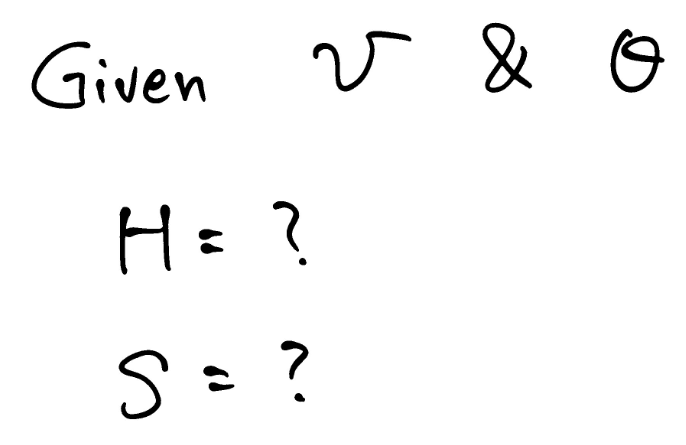 Given v & θ
H = ?
S = ?